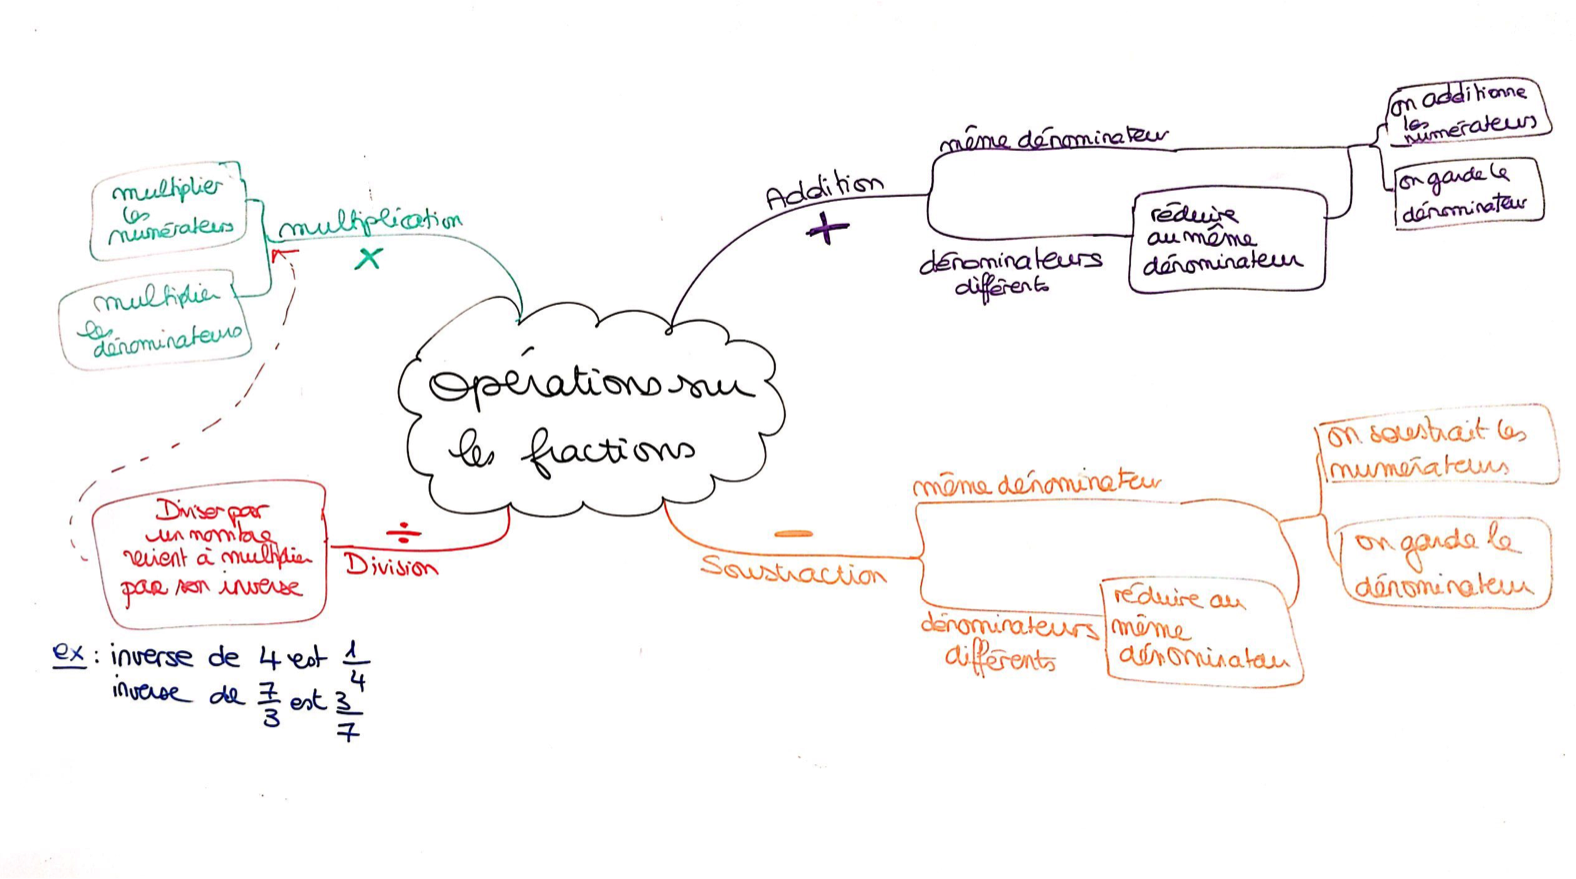 Opérations sur
les fractions
Addition
+
même dénominateur
dénominateurs
différents
réduire
au même
dénominateur
on additionne
les
numérateurs
on garde le
dénominateur
Soustraction
−
même dénominateur
dénominateurs
différents
réduire au
même
dénominateur
on soustrait les
numérateurs
on garde le
dénominateur
Division
÷
Diviser par
un nombre
revient à multiplier
par son inverse
ex : inverse de 4 est 1/4
inverse de 7/3 est 3/7
multiplication
×
multiplier
les
numérateurs
multiplier
les
dénominateurs